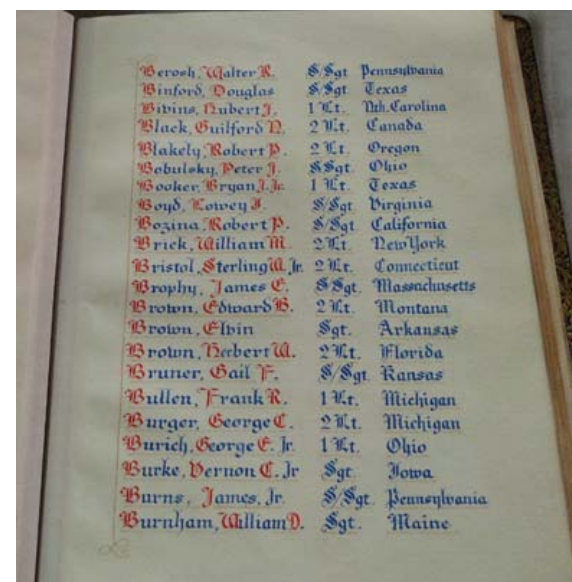 Berosh, Walter R. S/Sgt Pennsylvania
Binford, Douglas S/Sgt Texas
Bivins, Nubert J. 1 Lt. Nth. Carolina
Black, Guilford D. 2 Lt. Canada
Blakely, Robert P. 2 Lt. Oregon
Bobulsky, Peter J. S/Sgt. Ohio
Booker, Bryan J. Jr. 1 Lt. Texas
Boyd, Lowey J. S/Sgt. Virginia
Bozina, Robert P. S/Sgt. California
Brick, William M. 2 Lt. New York
Bristol, Sterling W. Jr. 2 Lt. Connecticut
Brophy, James E. S/Sgt. Massachusetts
Brown, Edward B. 2 Lt. Montana
Brown, Elvin Sgt. Arkansas
Brown, Herbert W. 2 Lt. Florida
Bruner, Gail F. S/Sgt. Kansas
Bullen, Frank R. 1 Lt. Michigan
Burger, George C. 2 Lt. Michigan
Burich, George E. Jr. 1 Lt. Ohio
Burke, Vernon C. Jr Sgt. Iowa
Burns, James, Jr. S/Sgt. Pennsylvania
Burnham, William D. Sgt. Maine